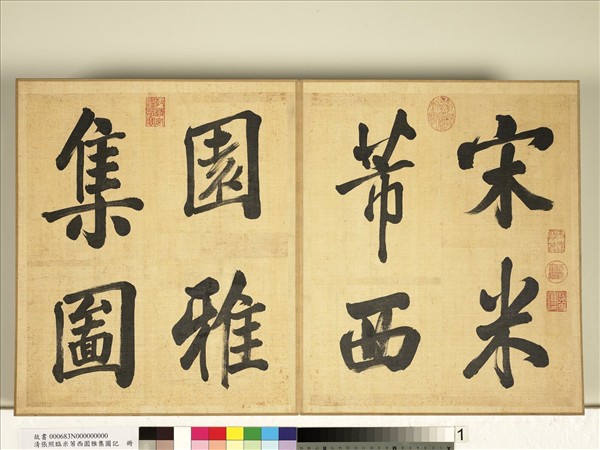 宋米
芾西
園雅
集圖
故書 000683N000000000
清張照臨米芾西園雅集圖記 冊
1